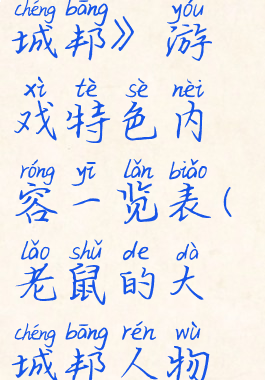 chéng bāng yóu
城邦》 游
xì tè sè nèi
戏特色内
róng yī lǎn biǎo
容一览表(
lǎo shǔ de dà
老鼠的大
chéng bāng rén wù
城邦人物